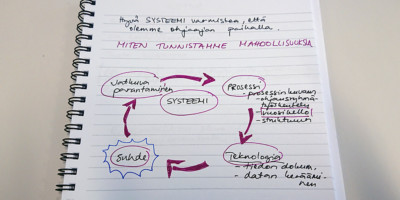 Hyvä SYSTEEMI varmistaa, että
olemme ohjaajan paikalla.
MITEN TUNNISTAMME MAHDOLLISUUKSIA
Jatkuva
parantaminen
PROSESSI
- prosessinkuvaus
SYSTEEMI
- vuosikello
- struktuuri
Suhde
Teknologia
- tiedon dokum.
- datan keräämi-
nen